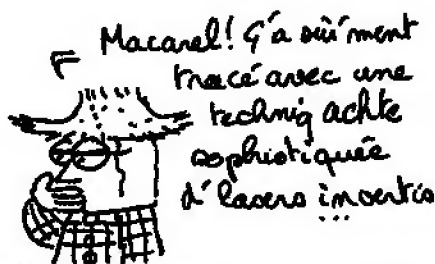 Macarel! Ç'a sûi'ment
tracé avec une
techniq achte
sophistiquée
d'lasers inventis
...